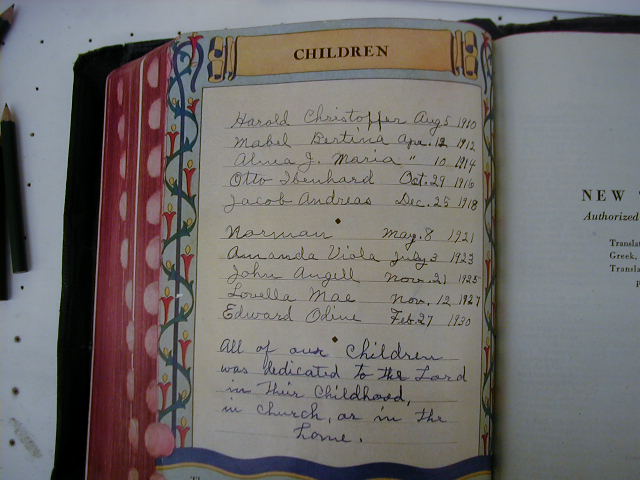 CHILDREN
Harold Christoffer Aug 5 1910
Mabel Bertina Apr. 12 1912
Alma J. Maria " 10 1914
Otto Ibenhard Oct. 29 1916
Jacob Andreas Dec. 25 1918
Norman May. 8 1921
Amanda Viola July 3 1923
John Angell Nov. 21 1925
Lovella Mae Nov. 12 1927
Edward Odine Feb. 27 1930
All of our Children
was dedicated to the Lord
in their Childhood,
in church, or in the
home.
NEW
Authorized
Translat
Greek,
Transla
P